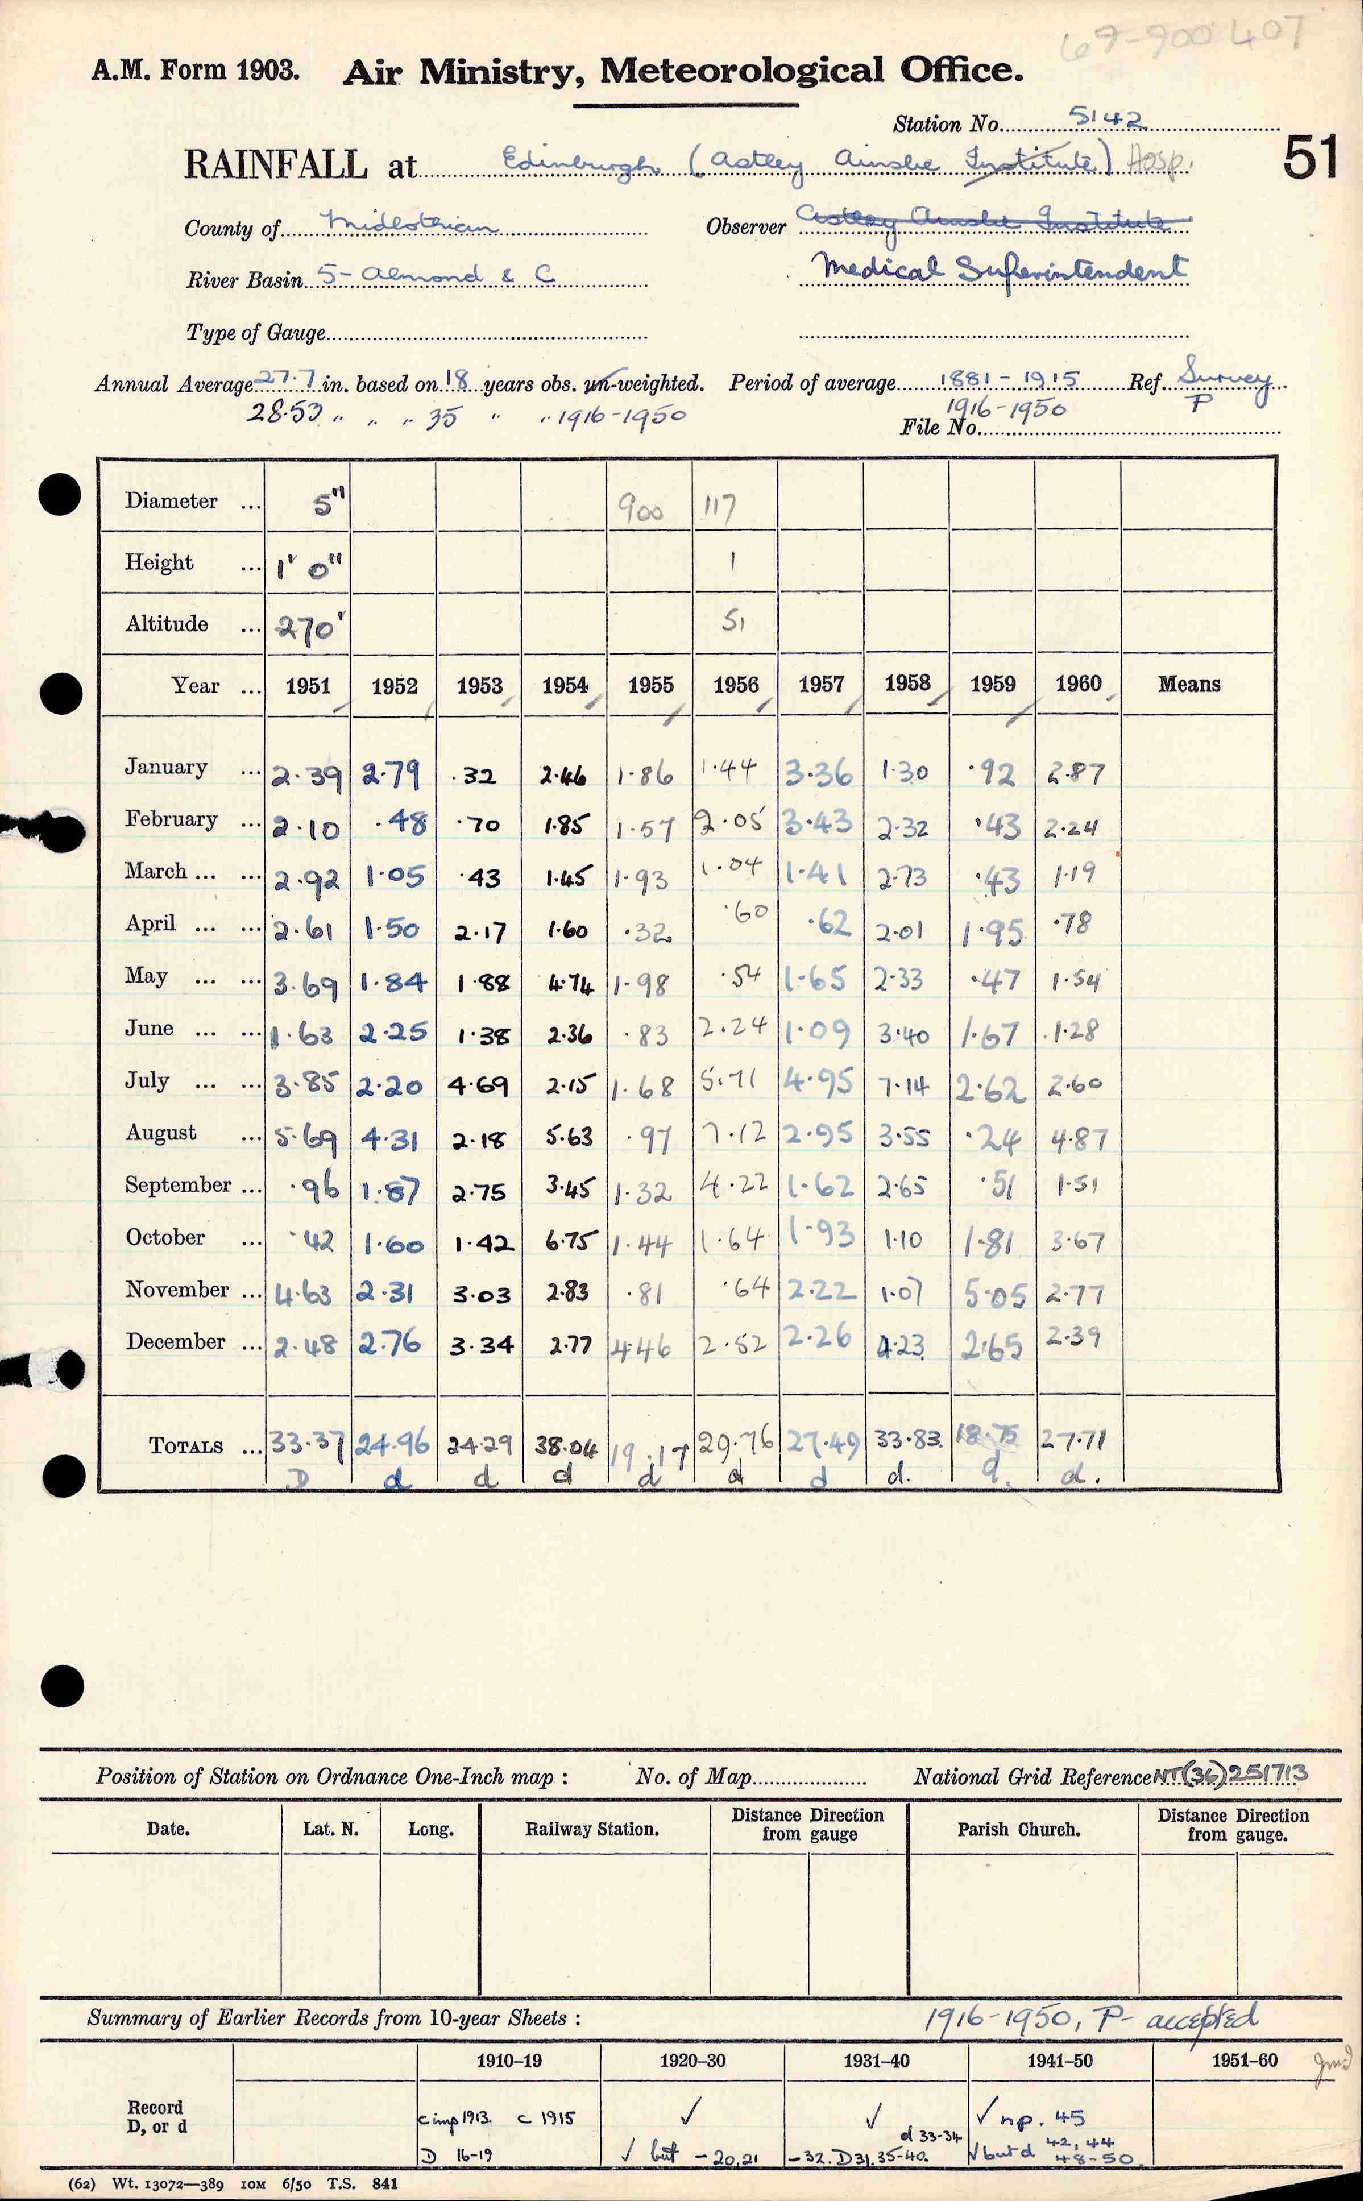 69-900407
A.M. Form 1903. Air Ministry, Meteorological Office.
Station No. 5142
RAINFALL at Edinburgh (Astley Ainslie Institute) Hosp. 51
County of Midlothian Observer Astley Ainslie Institute
River Basin 5- Almond & C Medical Superintendent
Type of Gauge
Annual Average 27.7 in. based on 18 years obs. un-weighted. Period of average 1881-1915 Ref. Survey
28.53 " " " 35 " " 1916-1950 1916-1950 P
File No.
Diameter ... 5" 900 117
Height ... 1' 0" 1
Altitude ... 270' 51
Year ... 1951 1952 1953 1954 1955 1956 1957 1958 1959 1960 Means
January ... 2.39 2.79 .32 2.46 1.86 1.44 3.36 1.30 .92 2.87
February ... 2.10 .48 .70 1.85 1.57 2.05 3.43 2.32 .43 2.24
March ... ... 2.92 1.05 .43 1.45 1.93 1.04 1.41 2.73 .43 1.19
April ... ... 2.61 1.50 2.17 1.60 .32 .60 .62 2.01 1.95 .78
May ... ... 3.69 1.84 1.88 4.74 1.98 .54 1.65 2.33 .47 1.54
June ... ... 1.63 2.25 1.38 2.36 .83 2.24 1.09 3.40 1.67 1.28
July ... ... 3.85 2.20 4.69 2.15 1.68 5.71 4.95 7.14 2.62 2.60
August ... 5.69 4.31 2.18 5.63 .97 7.12 2.95 3.55 .24 4.87
September ... .96 1.87 2.75 3.45 1.32 4.22 1.62 2.65 .51 1.51
October ... .42 1.60 1.42 6.75 1.44 1.64 1.93 1.10 1.81 3.67
November ... 4.63 2.31 3.03 2.83 .81 .64 2.22 1.07 5.05 2.77
December ... 2.48 2.76 3.34 2.77 4.46 2.52 2.26 4.23 2.65 2.39
TOTALS ... 33.37 24.96 24.29 38.04 19.17 29.76 27.49 33.83 18.75 27.71
D d d d d d d d. d. d.
Position of Station on Ordnance One-Inch map : No. of Map National Grid Reference NT(36)251713
Date. Lat. N. Long. Railway Station. Distance Direction from gauge Parish Church. Distance Direction from gauge.
Summary of Earlier Records from 10-year Sheets : 1916-1950, P- accepted
1910–19 1920–30 1931–40 1941–50 1951–60
Record c imp 1913. c 1915 ✓ ✓ ✓ np. 45
D, or d d 33-34
D 16-19 ✓ but -20,21 -32. D31.35-40. ✓ but d 42, 44
48-50
(62) Wt. 13072—389 10M 6/50 T.S. 841